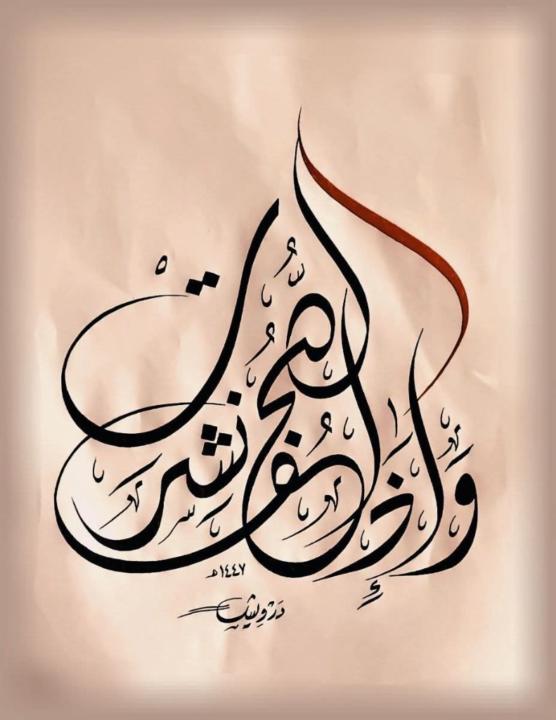 وَإِذَا الصُّحُفُ نُشِرَتْ
١٤٤٧هـ
درويش